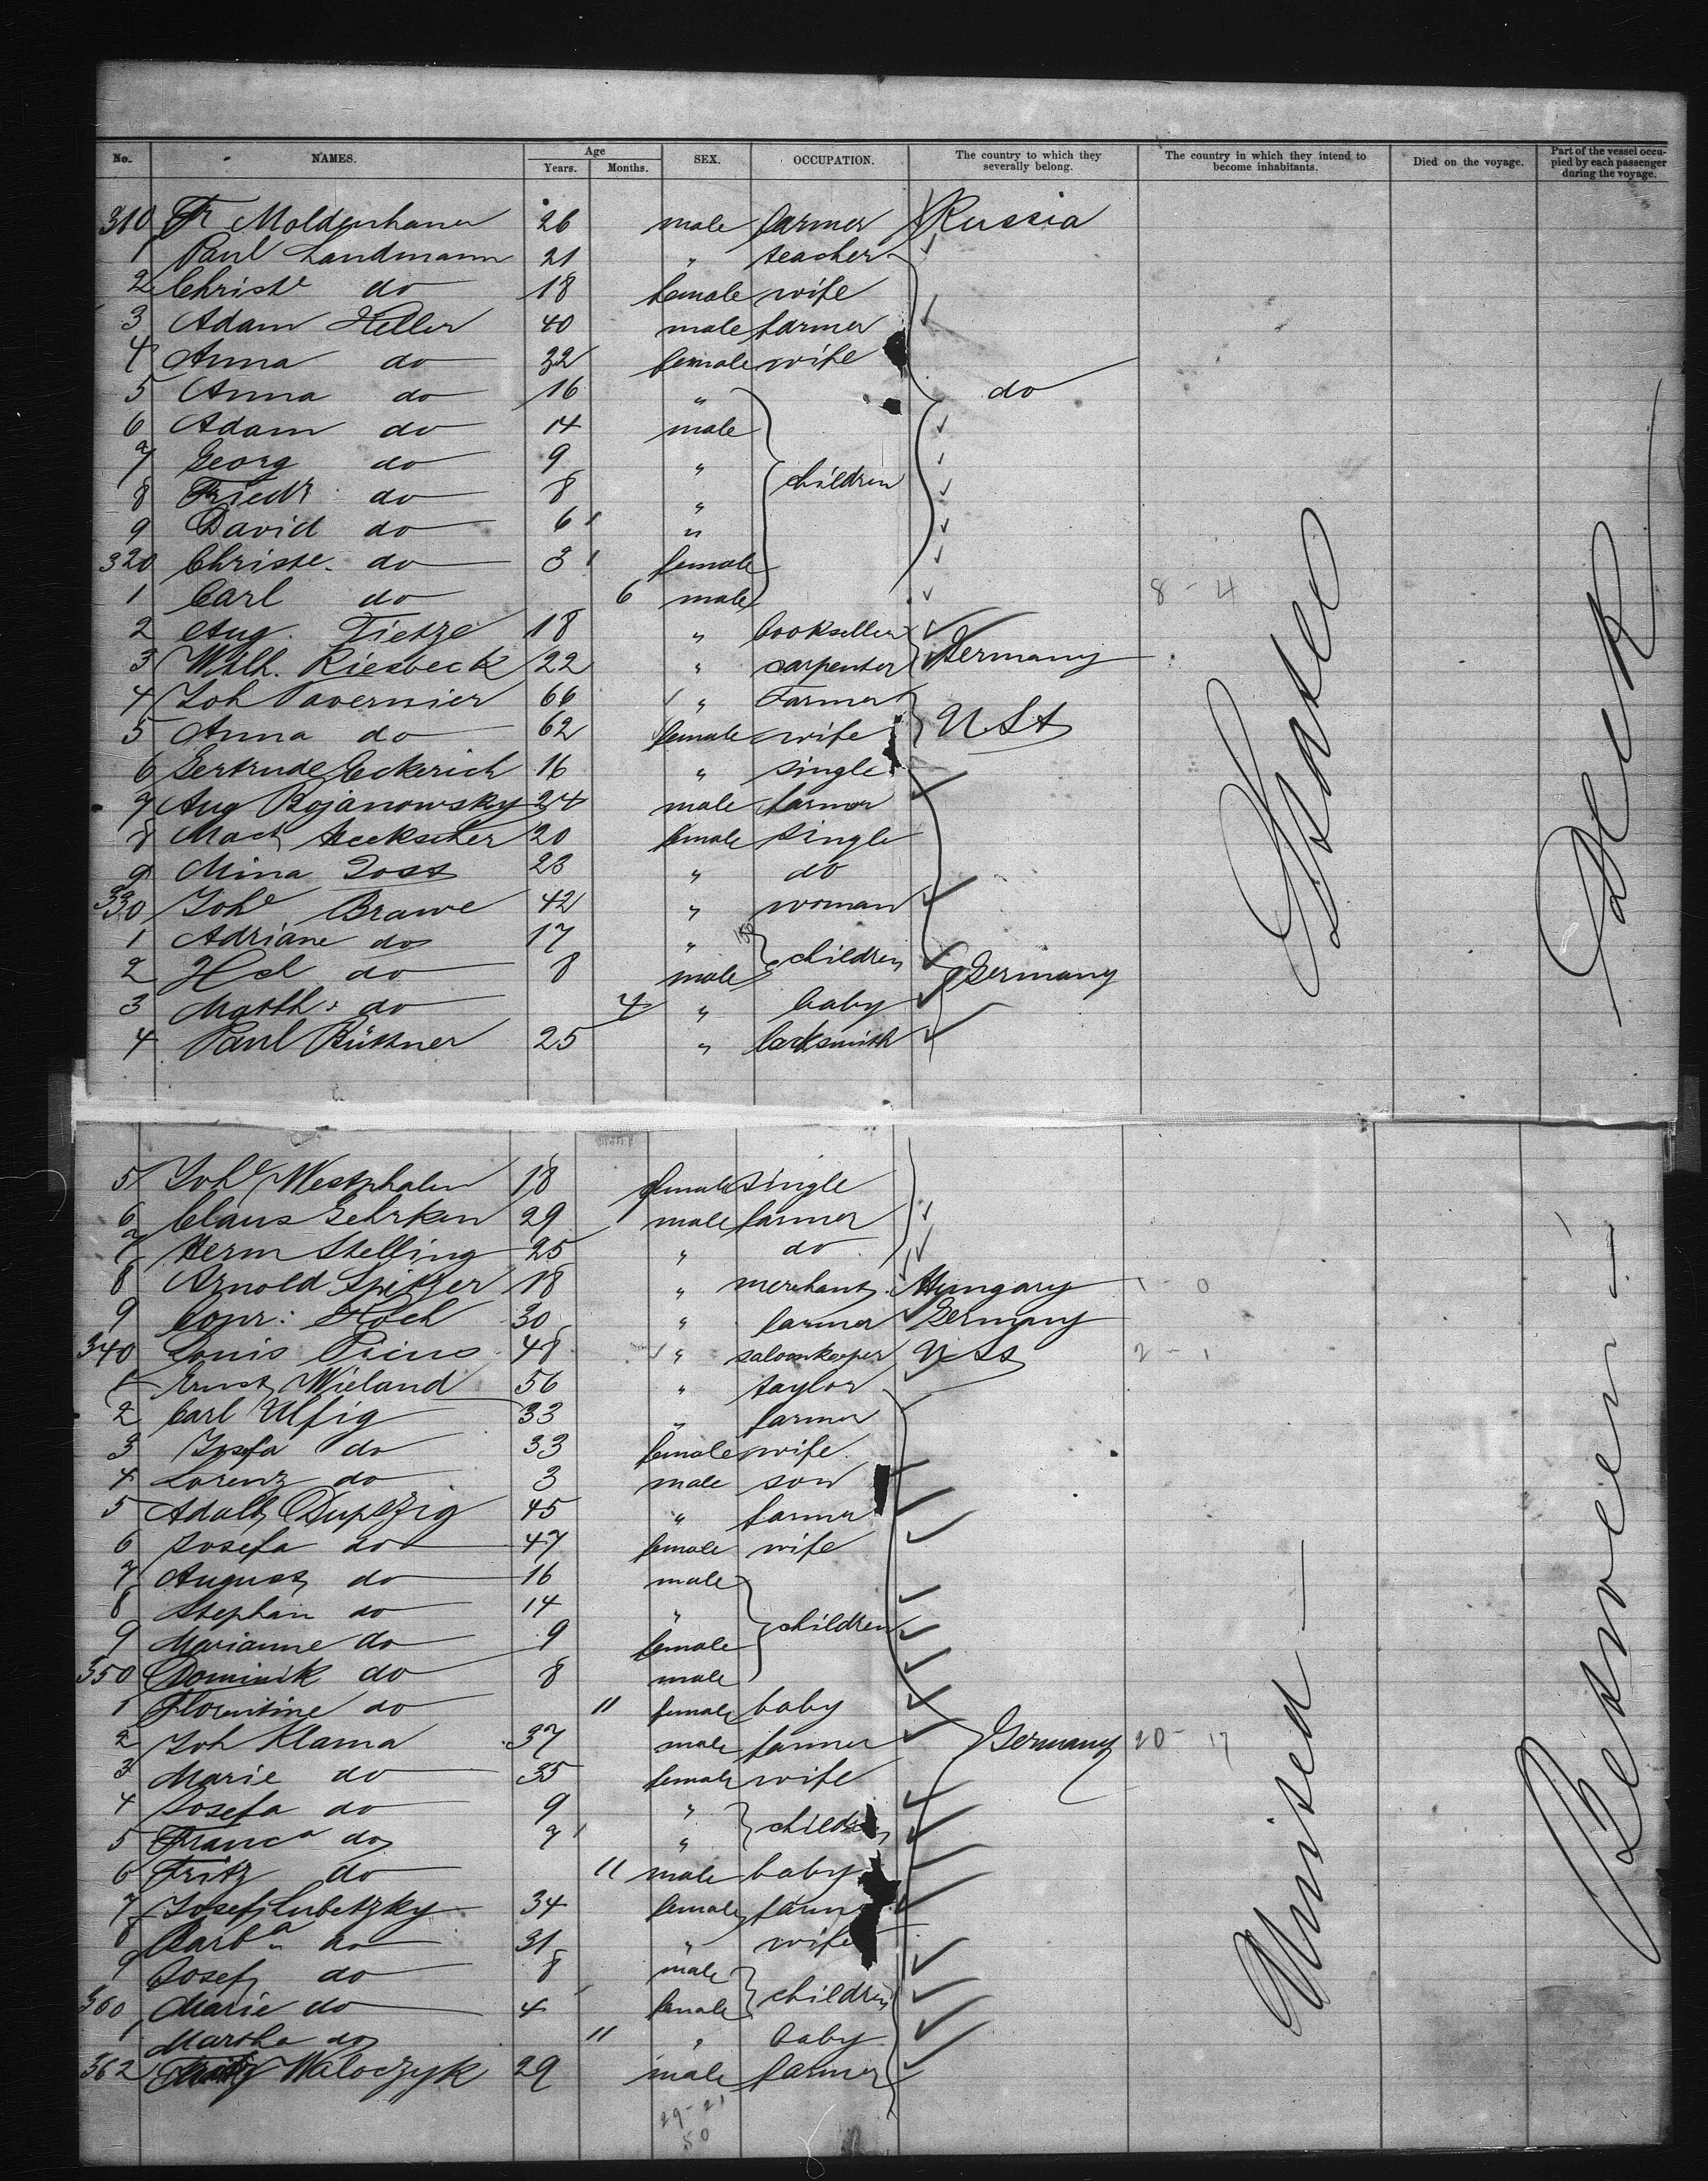 No. NAMES. Age Years. Months. SEX. OCCUPATION. The country to which they severally belong. The country in which they intend to become inhabitants. Died on the voyage. Part of the vessel occupied by each passenger during the voyage.
310 Fr Moldenhauer 26 male farmer Russia
1 Paul Landmann 21 " teacher
2 Christe do 18 female wife
3 Adam Heller 40 male farmer
4 Anna do 32 female wife
5 Anna do 16 " do
6 Adam do 14 male
7 Georg do 9 "
8 Friedr do 8 " children
9 David do 6 "
320 Christe. do 3 female
1 Carl do 6 male 8 - 4
2 Aug. Tietze 18 " bookseller
3 Wilh. Riesbeck 22 " carpenter Germany
4 Joh Tavernier 66 " Farmer
5 Anna do 62 female wife U. St
6 Gertrude Eckerich 16 " single
7 Aug Rojanowsky 24 male farmer
8 Heckscher 20 female single
9 Mina Jost 23 " do
330 Johe Brawe 42 " woman
1 Adriane do 17 " children
2 Hch do 8 male Germany
3 Matth: do 4 " baby
4 Paul Büttner 25 " locksmith
States
Deck
5 Johe Westphalen 18 female single
6 Claus Gehrken 29 male farmer
7 Herm Stelling 25 " do
8 Arnold Spitzer 18 " merchant Hungary 1 - 0
9 Conr: Koch 30 " farmer Germany
340 Louis Prins 48 " saloonkeeper U St 2 - 1
1 Ernst Wieland 56 " taylor
2 Carl Ulfig 33 " farmer
3 Josefa do 33 female wife
4 Lorenz do 3 male son
5 Adalb 45 " farmer
6 Josefa do 47 female wife
7 August do 16 male
8 Stephan do 14 " children
9 Marianne do 9 female
350 Dominik do 8 male
1 Florentine do 11 female baby
2 Joh Klama 37 male farmer Germany 20 - 17
3 Marie do 35 female wife
4 Josefa do 9 " children
5 Franca do 7 "
6 Fritz do 11 male baby
7 Josef Lubetzky 34 female farm
8 Barba do 31 " wife
9 Josef do 8 male
360 Marie do 4 female children
1 Martha do 11 " baby
362 Waloczyk 29 male farmer
29 - 21
50
United
Between